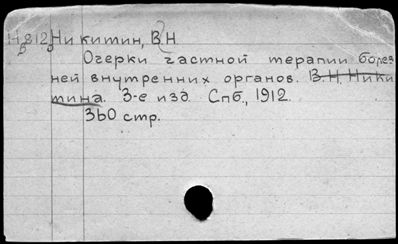 Н812 Никитин, В Н
Очерки частной терапии болез
ней внутренних органов. В. Н. Ники
тина. 3-е изд. Спб., 1912.
360 стр.